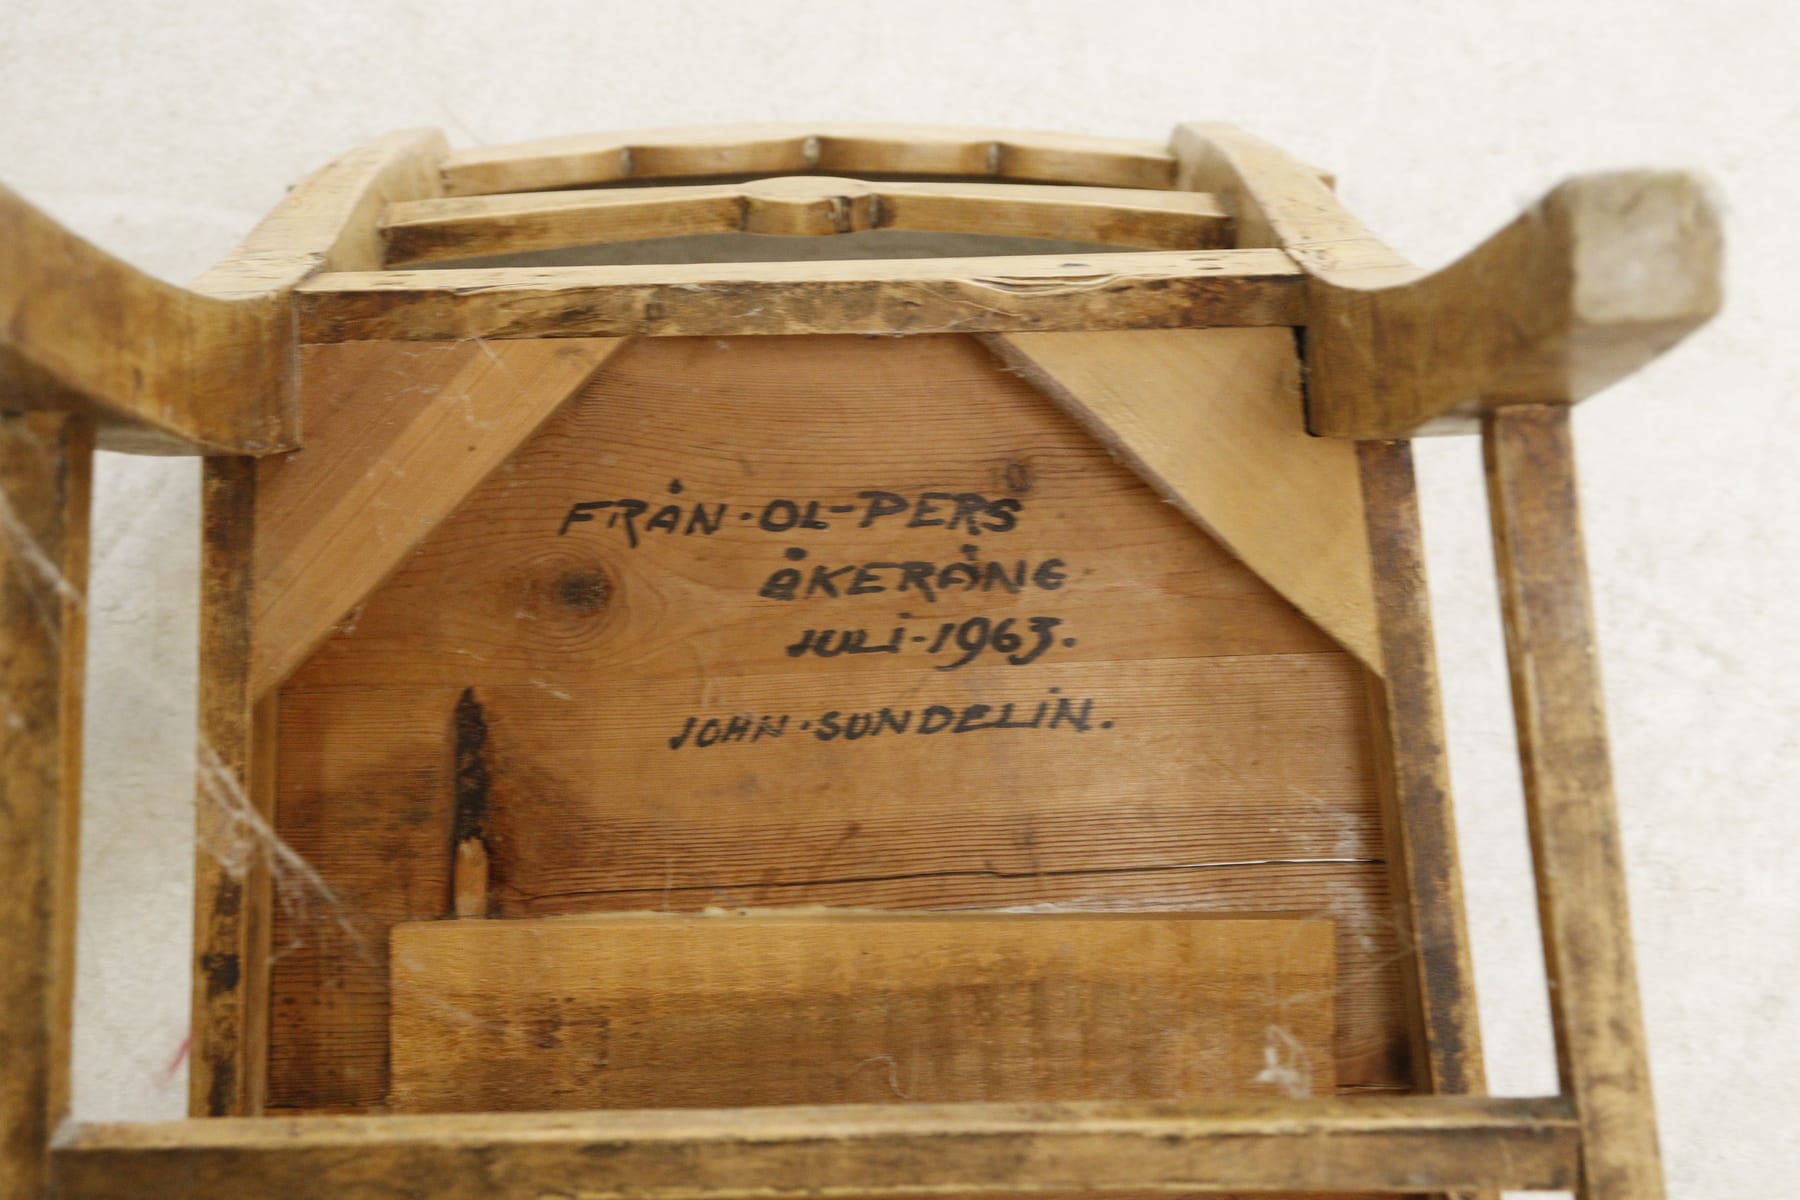 FRÅN·OL-PERS
ÅKERÄNG
JULI-1963.
JOHN·SUNDELIN.